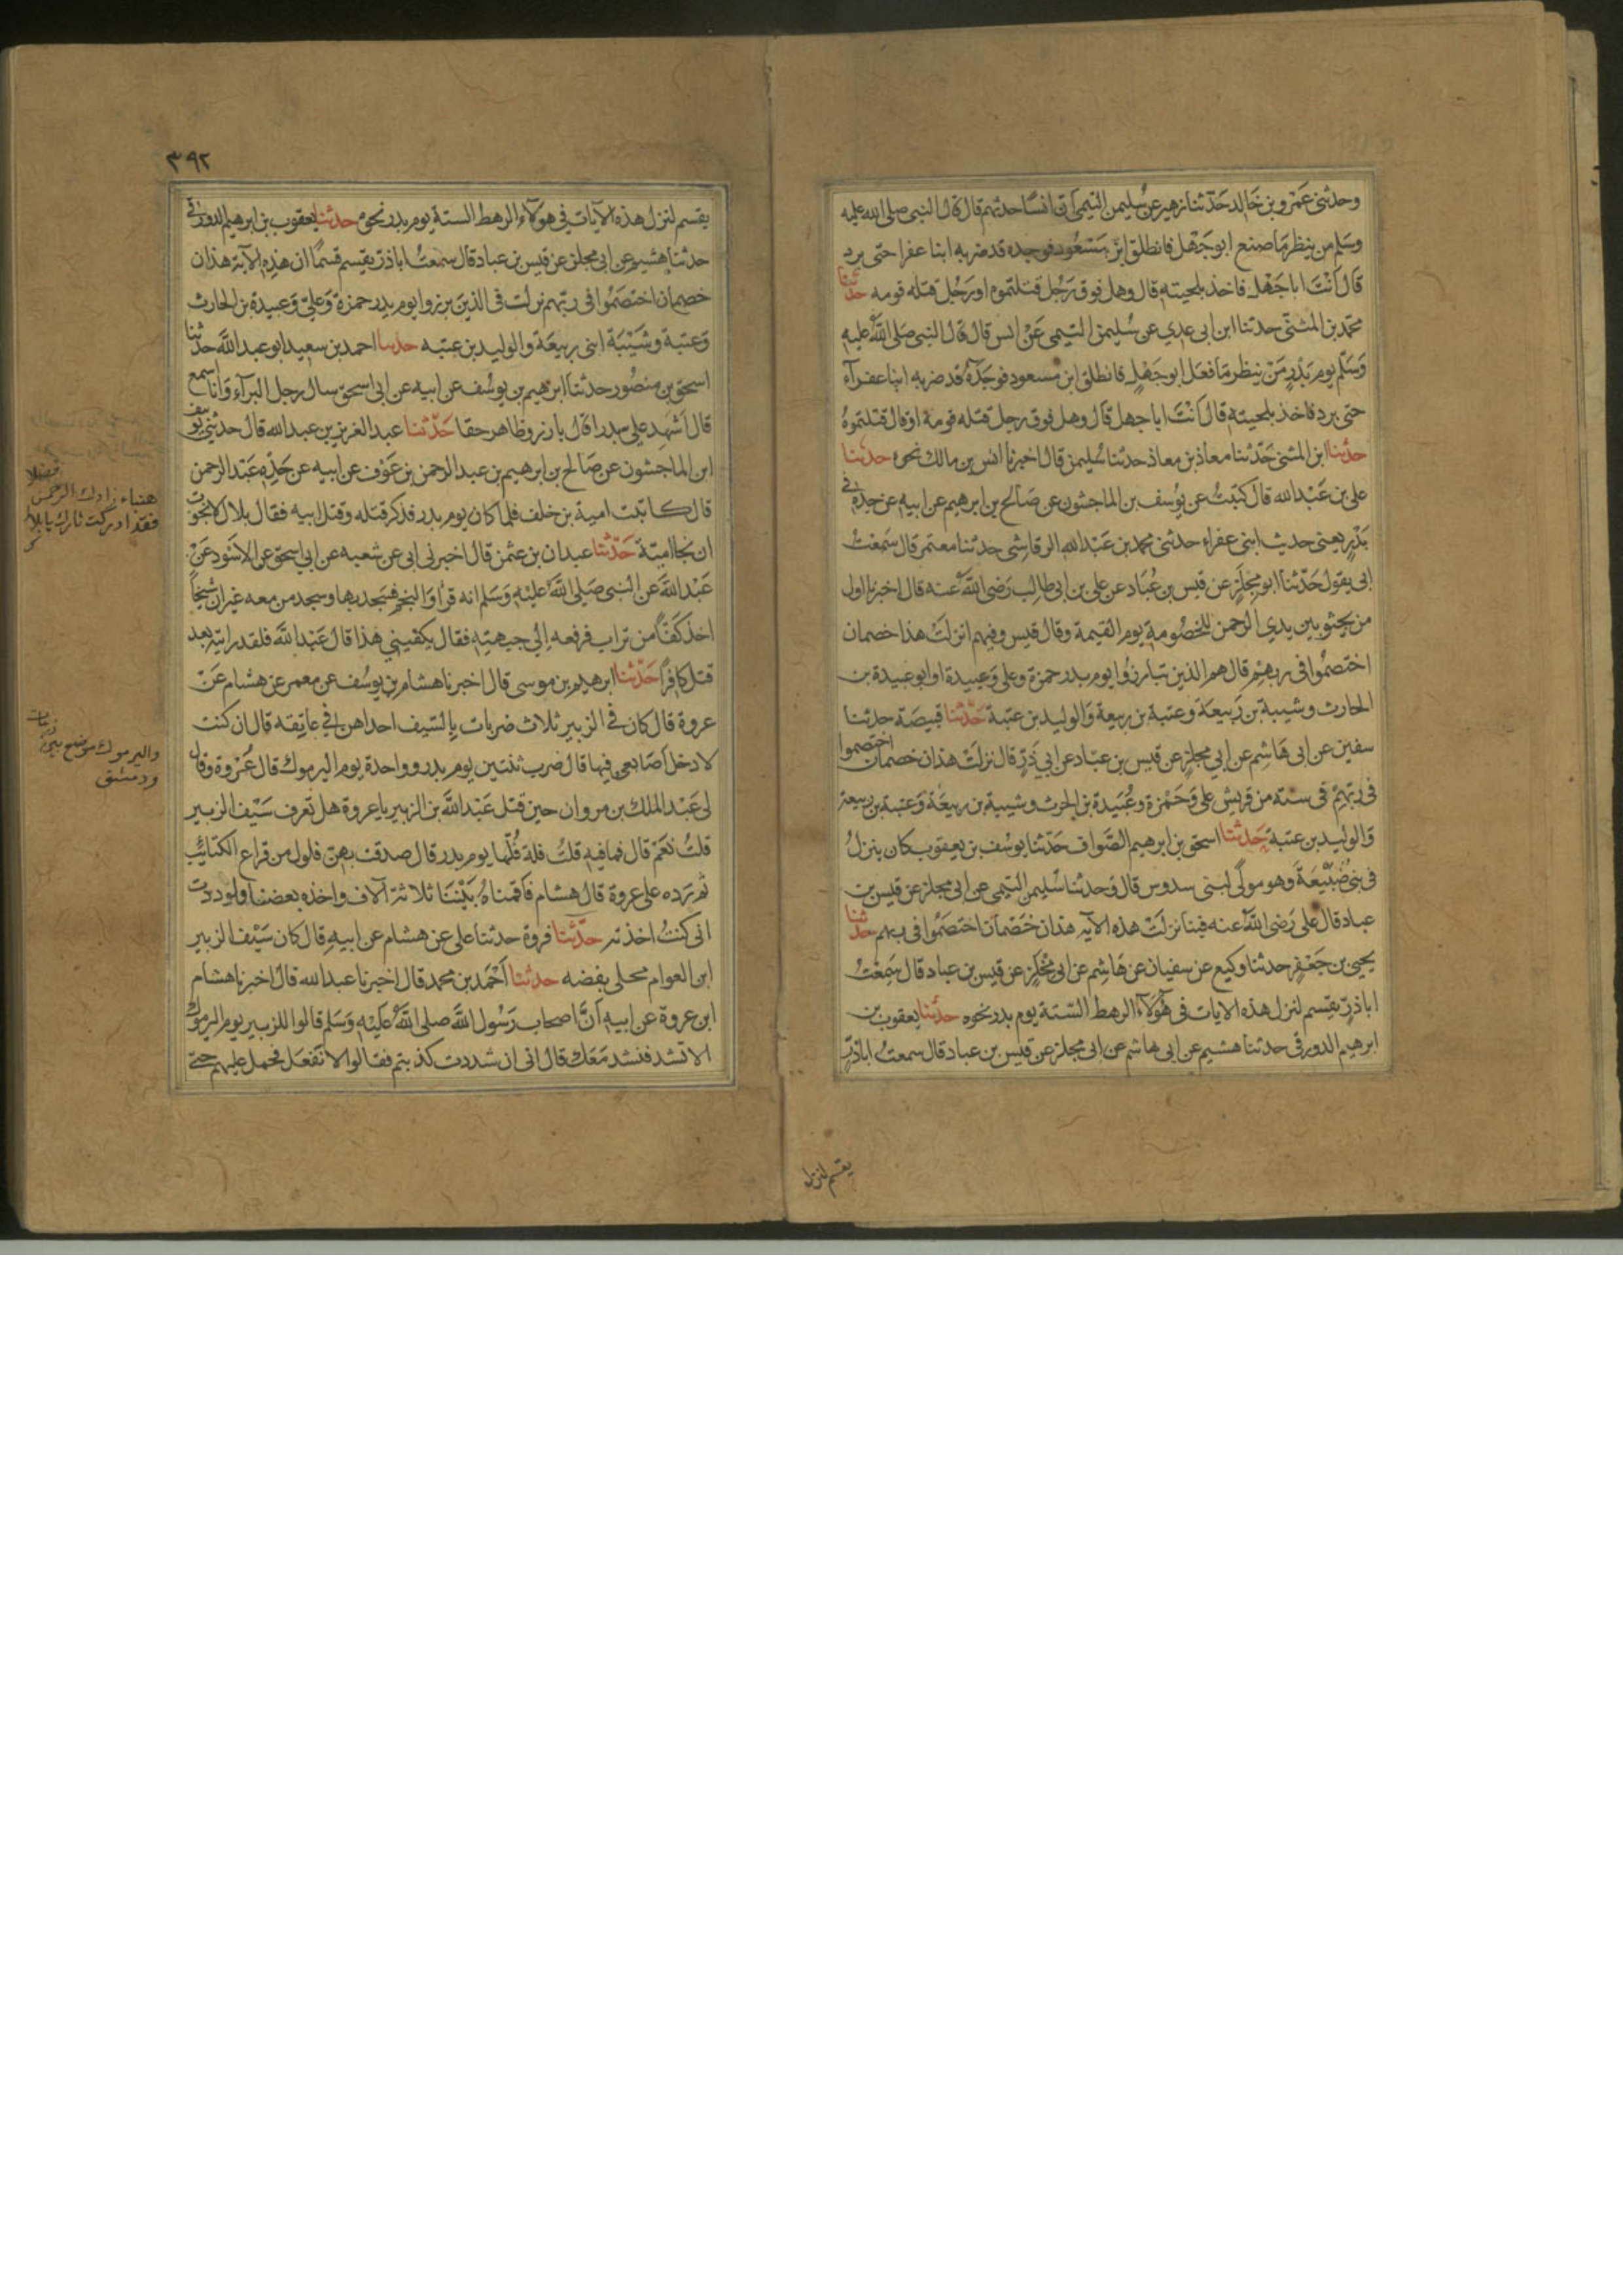 وحدثني عَمْرو بن خَالد حَدّثنا زهير عن سُليمن التيمى اَنّ انسًا حدثهم قال قال النبى صلى الله عليه
وسَلم من ينظر مَا صنع ابو جَهْل فانطلق ابن مَسْعُود فوجده قد ضربه ابنا عفرا حتى برد
قال اَنْتَ ابا جَهْل فاخذ بلحيته قال وهل فوق رَجُل قتلتموه او رَجُل قتله قومه حدثنا
محمّد بن المثنّى حدثنا ابن ابى عدي عن سُليمن التيمى عَنْ انس قال قال النبى صَلى اللهُ عليه
وَسَلّم يوم بَدْرٍ مَنْ ينظر مَا فعَل ابو جَهْلٍ فانطلق ابن مسعود فوجَدَهُ قد ضربه ابنا عفرآء
حتى برد فاخذ بلحيته قال اَنْتَ ابا جهل قَال وهل فوق رجل قتله قومه او قال قتلتموهُ
حدثنا ابن المثنى حَدّثنا معاذ بن معاذ حدثنا سُليمن قال اخبرنا انس بن مالك نحوه حدثنا
على بن عَبْد الله قال كتبتُ عن يوُسف بن الماجشون عن صَالح بن ابرهيم عن ابيه عن جدّه فى
بَدْرٍ يعنى حديث ابنى عفراء حدثنى محمد بن عَبْد الله الرقاشى حدثنا معتمر قال سَمعْتُ
ابى يقول حَدّثنا ابو مِجْلَزٍ عن قيس بن عُبَاد عن على بن ابى طالِب رَضى اللهُ عنه قال اخبرنا اول
من يجثو بين يدي الرحمن للخصُومة يوم القيمة وقال قيس وفيهم انزلتْ هذا خصمان
اختصمُوا فى ربهِمْ قال هم الذين تبارَزُوا يوم بدر حمزة وعلى وَعبيدة او ابو عبيدة بن
الحارث وشيبة بن رَبيعَة وعتبة بن ربيعة وَالوليد بن عتبة حَدّثنا قبيصَة حدثنا
سفين عن ابى هَاشِم عن ابي مجلزٍ عن قيس بن عبّاد عن ابي ذرٍّ قال نزلَتْ هذان خصمان اختصموا
فى ربّهمْ فى ستة من قريش على وَحَمْزة وعُبَيدة بن الحرث وشيبة بن ربيعَة وَعتبة بن ربيعة
وَالوليد بن عتبة حَدثنا اسحق بن ابرهيم الصَّواف حَدّثنا يوسُف بن يعقوب كان ينزلُ
فى بنى ضُبَيْعَةَ وهو مولًى لبنى سدوس قال وَحدثنا سُليمن التيمى عن ابى مجلز عن قيس بن
عباد قال على رَضى اللهُ عنه فينا نزلَتْ هذه الآية هذان خَصْمان اختصَمُوا فى ربهم حدثنا
يحيى بن جَعْفر حدثنا وكيع عن سفيان عن هَاشِم عن ابى مِجْلَزٍ عن قيس بن عباد قال سَمِعْتُ
ابا ذرّ يقسم لنزل هذه الايات فى هَؤلآء الرهط السّتة يوم بدر نحوه حدثنا يعقوب بن
ابرهيم الدورقى حدثنا هشيم عن ابى هاشم عن ابى مجلز عن قيس بن عباد قال سمعتُ اباذرّ
يقسم لنزل
٣٩٢
يقسم لنزل هذه الآيات فى هولاء الرهط الستة يوم بدر نحوه حدثنا يعقوب بن ابرهيم الدورقى
حدثنا هشيم عن ابى مجلز عن قيس بن عباد قال سمعتُ اباذرّ يقسم قسمًا ان هذِه الآية هذان
خصمان اختصَمُوا فى ربّهم نزلت فى الذينَ برزوا يوم بدر حمزة وَعلىّ وَعبيدة بن الحارث
وَعتبة وشَيْبَة ابنى ربيعَة والوليد بن عتبه حدثنا احمد بن سعيد ابو عبد الله حدثنا
اسحق بن منصُور حدثنا ابرهيم بن يوسُف عن ابيه عن ابى اسحق سال رجل البرآء وَانا اسمع
قال اَشَهِد علي بدرا قال بارز وظاهر حقا حَدّثنا عبد العزيز بن عبد الله قال حدثنى يوسف
ابن الماجشون عن صَالح بن ابرهيم بن عبد الرحمن بن عَوْف عن ابيه عن جَدِّه عَبْد الرحمن
قال كاتبت امية بن خلف فلما كان يوم بدر فذكر قتله وقتل ابيه فقال بلال لا نجوت
ان نجا اميّة حَدّثنا عبدان بن عثمن قال اخبرنى ابى عن شعبه عن ابي اسحق عن الاسْود عَنْ
عَبْد الله عن النبى صَلى اللهُ عَليْه وَسَلم انه قرأ وَالنجم فسَجد بها وسجد من معه غير ان شيخًا
اخذ كفّا من تراب فرفعه الي جبهته فقال يكفينى هذا قال عَبْد الله فلقد رايته بعد
قتل كافرًا حَدّثنا ابرهيم بن موسى قال اخبرنا هشام بن يوسُف عن معمر عن هشام عَنْ
عروة قال كان في الزبير ثلاث ضربات بالسّيف احداهن في عاتِقه قال ان كنت
لادخل اَصَابعى فيها قال ضرب ثنتين يوم بدر وواحدة يوم اليرموك قال عُرْوة وقال
لى عَبْد الملك بن مروان حين قتل عَبْد الله بن الزبير يا عروة هل تعرف سَيْف الزبير
قلتُ نعَمْ قال فما فيه قلتُ فلة فُلّها يوم بدر قال صدقت بهنّ فلول من قراع الكتائبِ
ثم رَده على عروة قال هشام فاَقمناهُ بَيْنَنا ثلاثة آلاف واخذه بعضنا ولوددت
انى كنتُ اخذته حدّثنا فروة حدثنا على عن هشام عن ابيه قال كان سَيْف الزبير
ابن العوام محلى بفضه حدثنا اَحْمَد بن محمد قال اخبرنا عبد الله قال اخبرنا هشام
ابن عروة عن ابيه اَنَّ اصحاب رَسُول الله صلى اللهُ عَليْه وَسَلم قالوا للزبير يوم اليرموك
الا تشد فنشد مَعَك قال انى ان شددت كذبتم فقالوا لا نَفعَل فحمل عليهم حتى
هنياء زادك الرحمن فضلا
فقد ادركت ثارك يا بلال
واليرموك موضع بين
ودمشق